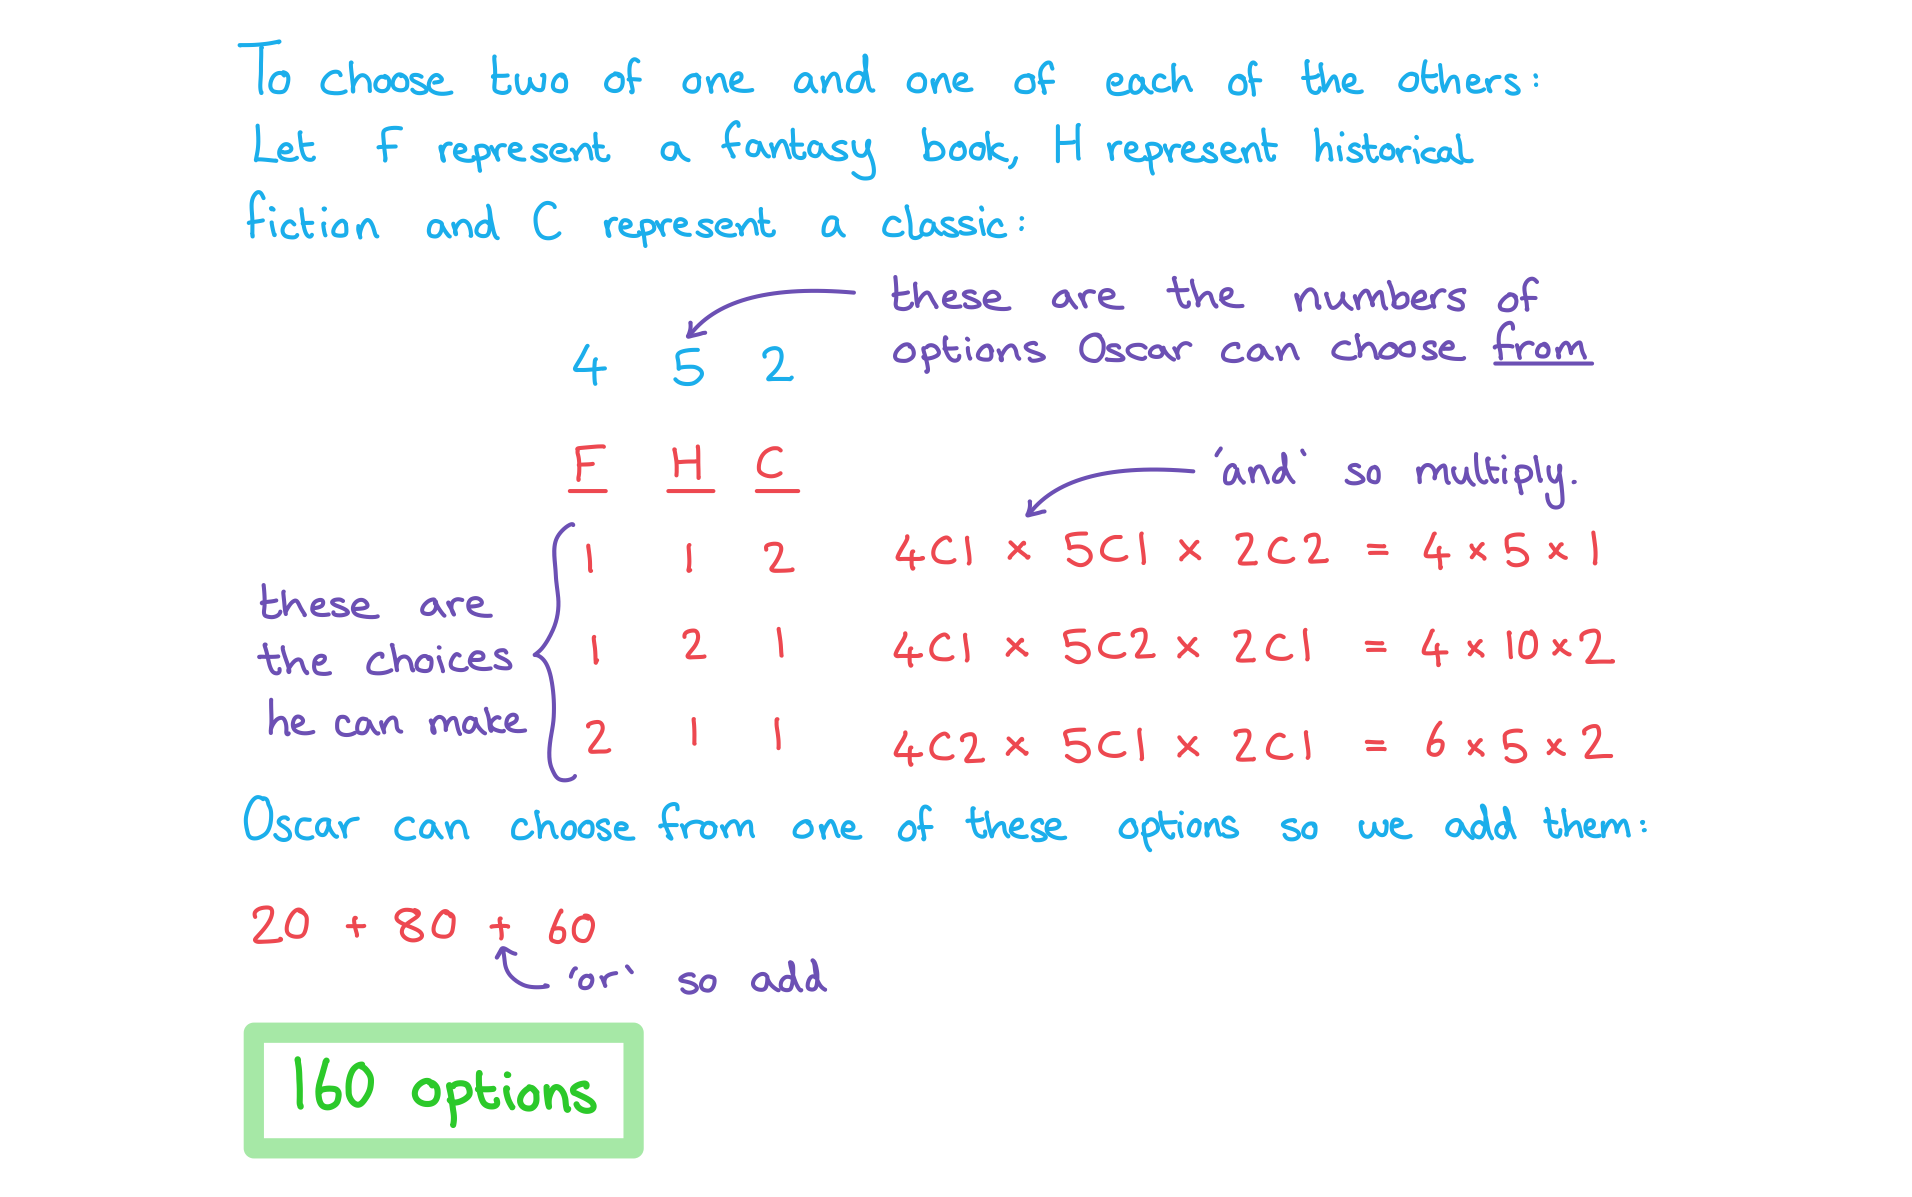 To choose two of one and one of each of the others:
Let F represent a fantasy book, H represent historical
fiction and C represent a classic:
these are the numbers of
options Oscar can choose from
4 5 2
F H C
'and' so multiply.
1 1 2 4C1 × 5C1 × 2C2 = 4 × 5 × 1
these are
the choices
he can make
1 2 1 4C1 × 5C2 × 2C1 = 4 × 10 × 2
2 1 1 4C2 × 5C1 × 2C1 = 6 × 5 × 2
Oscar can choose from one of these options so we add them:
20 + 80 + 60
'or' so add
160 options